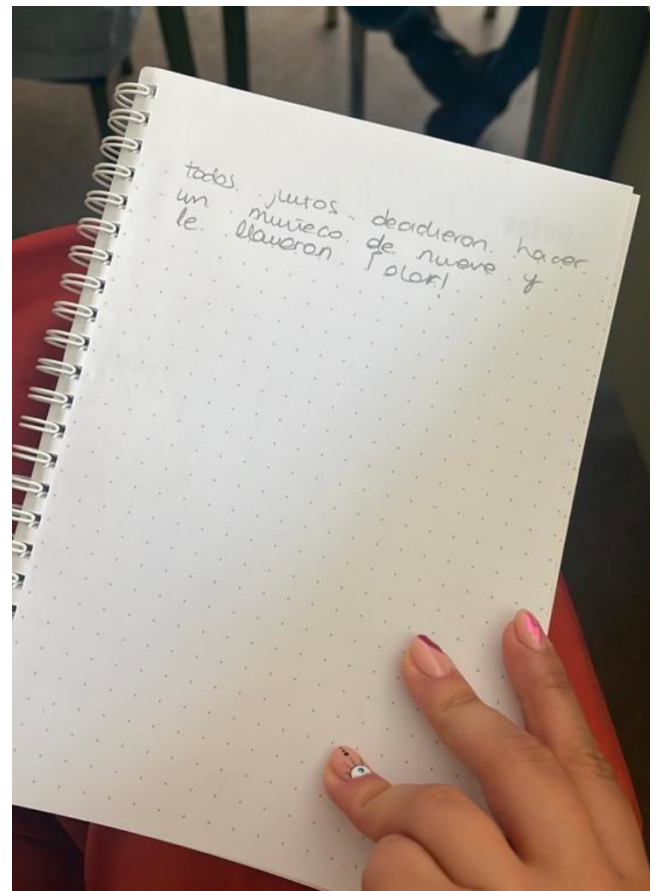 todos juntos decidieron hacer
un muñeco de nueve y
le llaveron ¡olaf!